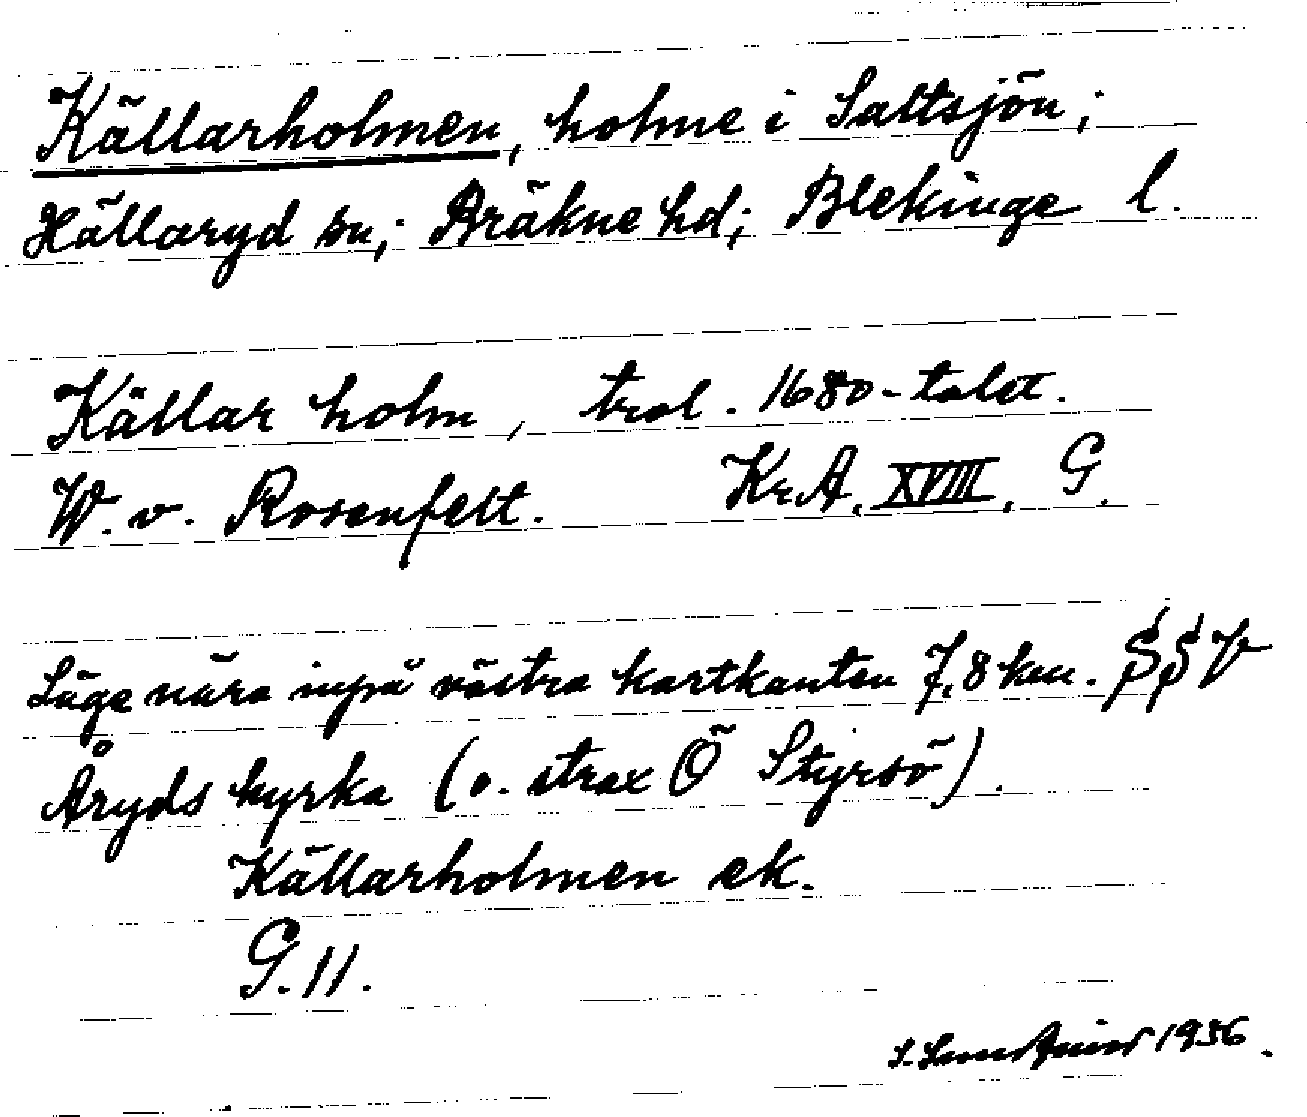 Källarholmen, holme i Saltsjön;
Hällaryd sn; Bräkne hd; Blekinge l.
Källar holm, trol. 1680-talet.
W. v. Rosenfelt. KrA, XVIII, G.
Läge nära inpå västra kartkanten 7,8 km. SSV
Åryds kyrka (o. strax Ö Styrsö).
Källarholmen ek.
G. 11.
1936.